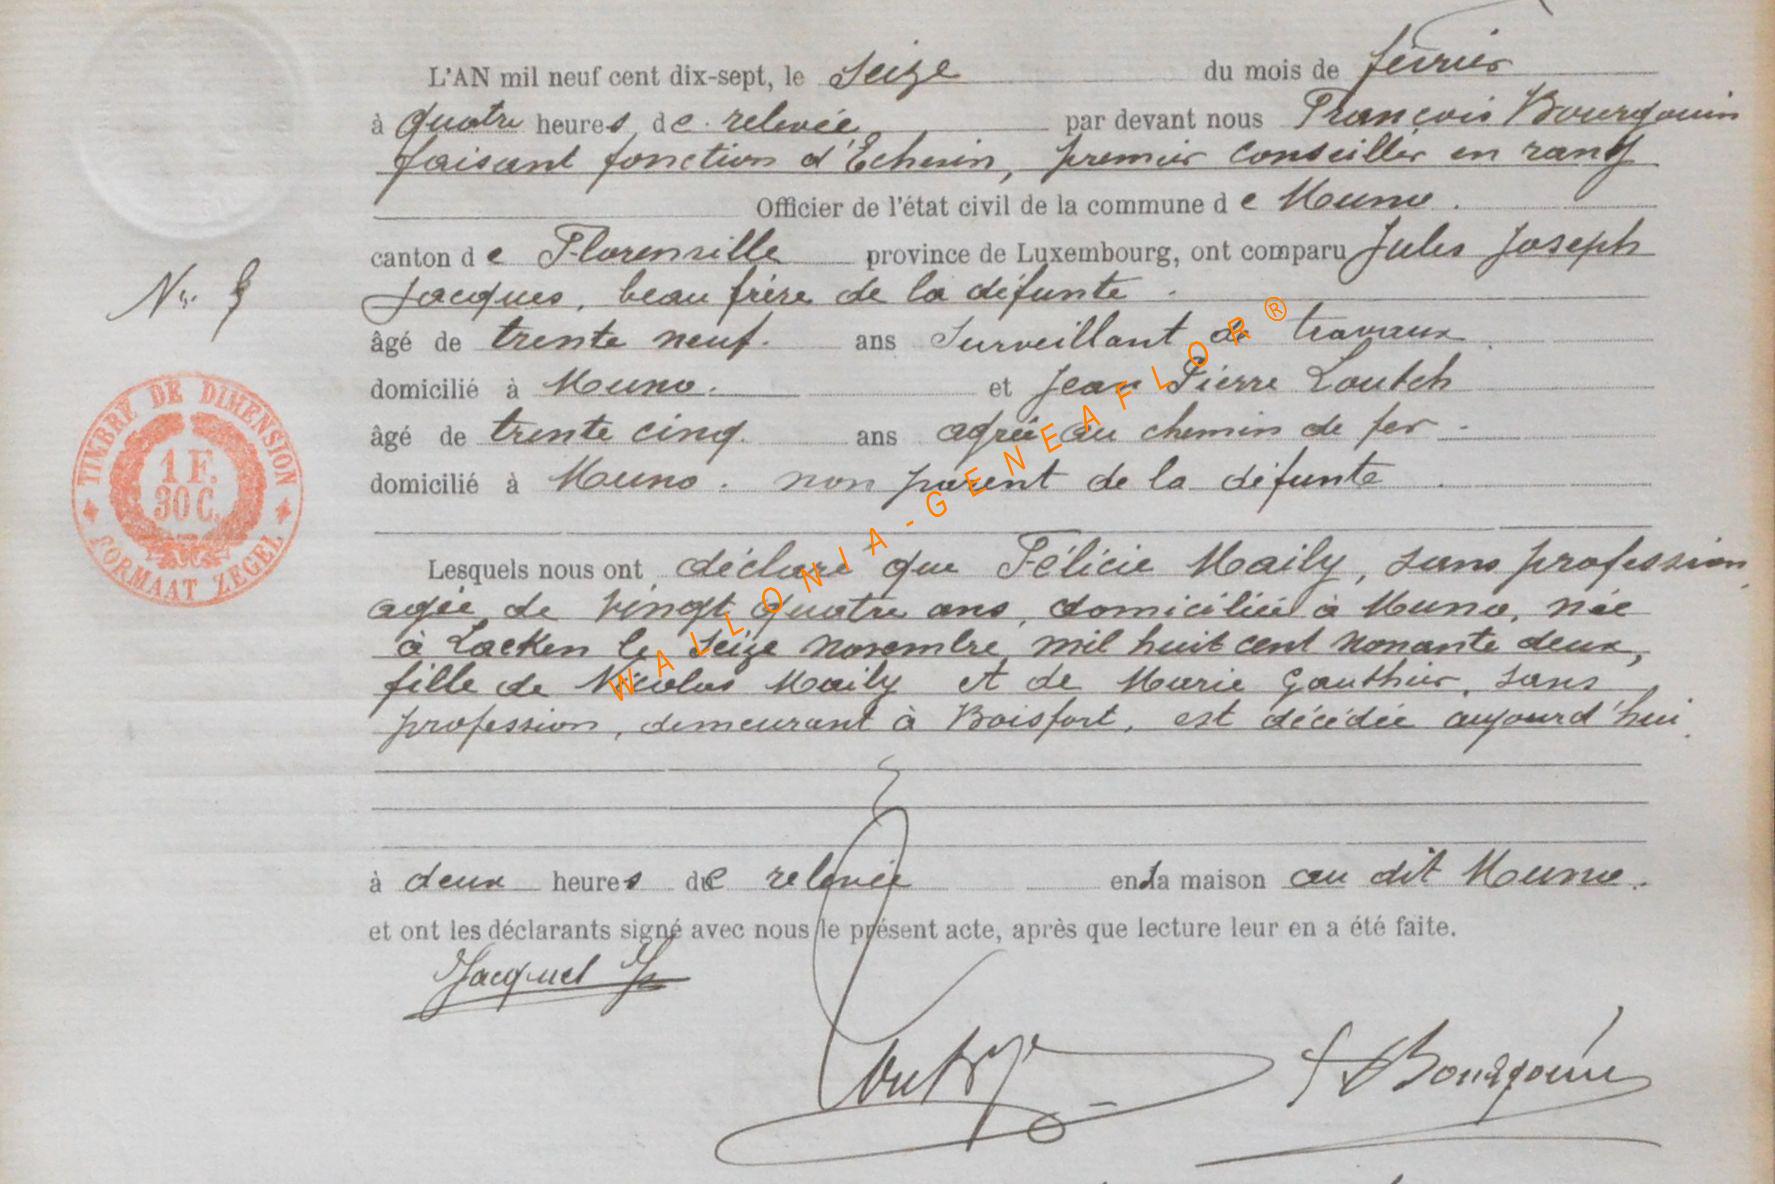 L'AN mil neuf cent dix-sept, le seize du mois de février
à quatre heures de relevée par devant nous François Bourgouin
faisant fonction d'Echevin, premier conseiller en rang
Officier de l'état civil de la commune de Muno.
canton de Florenville province de Luxembourg, ont comparu Jules Joseph
Jacques, beau frère de la défunte.
Nr.
âgé de trente neuf. ans Surveillant de travaux
domicilié à Muno. et Jean Pierre Loutch
âgé de trente cinq. ans agréé au chemin de fer.
domicilié à Muno. non parent de la défunte
TIMBRE DE DIMENSION
1 F.
30 C.
FORMAAT ZEGEL
Lesquels nous ont déclaré que Félicie Maily, sans profession,
agée de vingt quatre ans, domiciliée à Muno, née
à Laeken le seize novembre mil huit cent nonante deux,
fille de Nicolas Maily et de Marie Gauthier, sans
profession, demeurant à Boisfort, est décédée aujourd'hui.
à deux heures de relevée en la maison au dit Muno.
et ont les déclarants signé avec nous le présent acte, après que lecture leur en a été faite.
F Bourgouin
WALLONIA-GENEAFLOR®